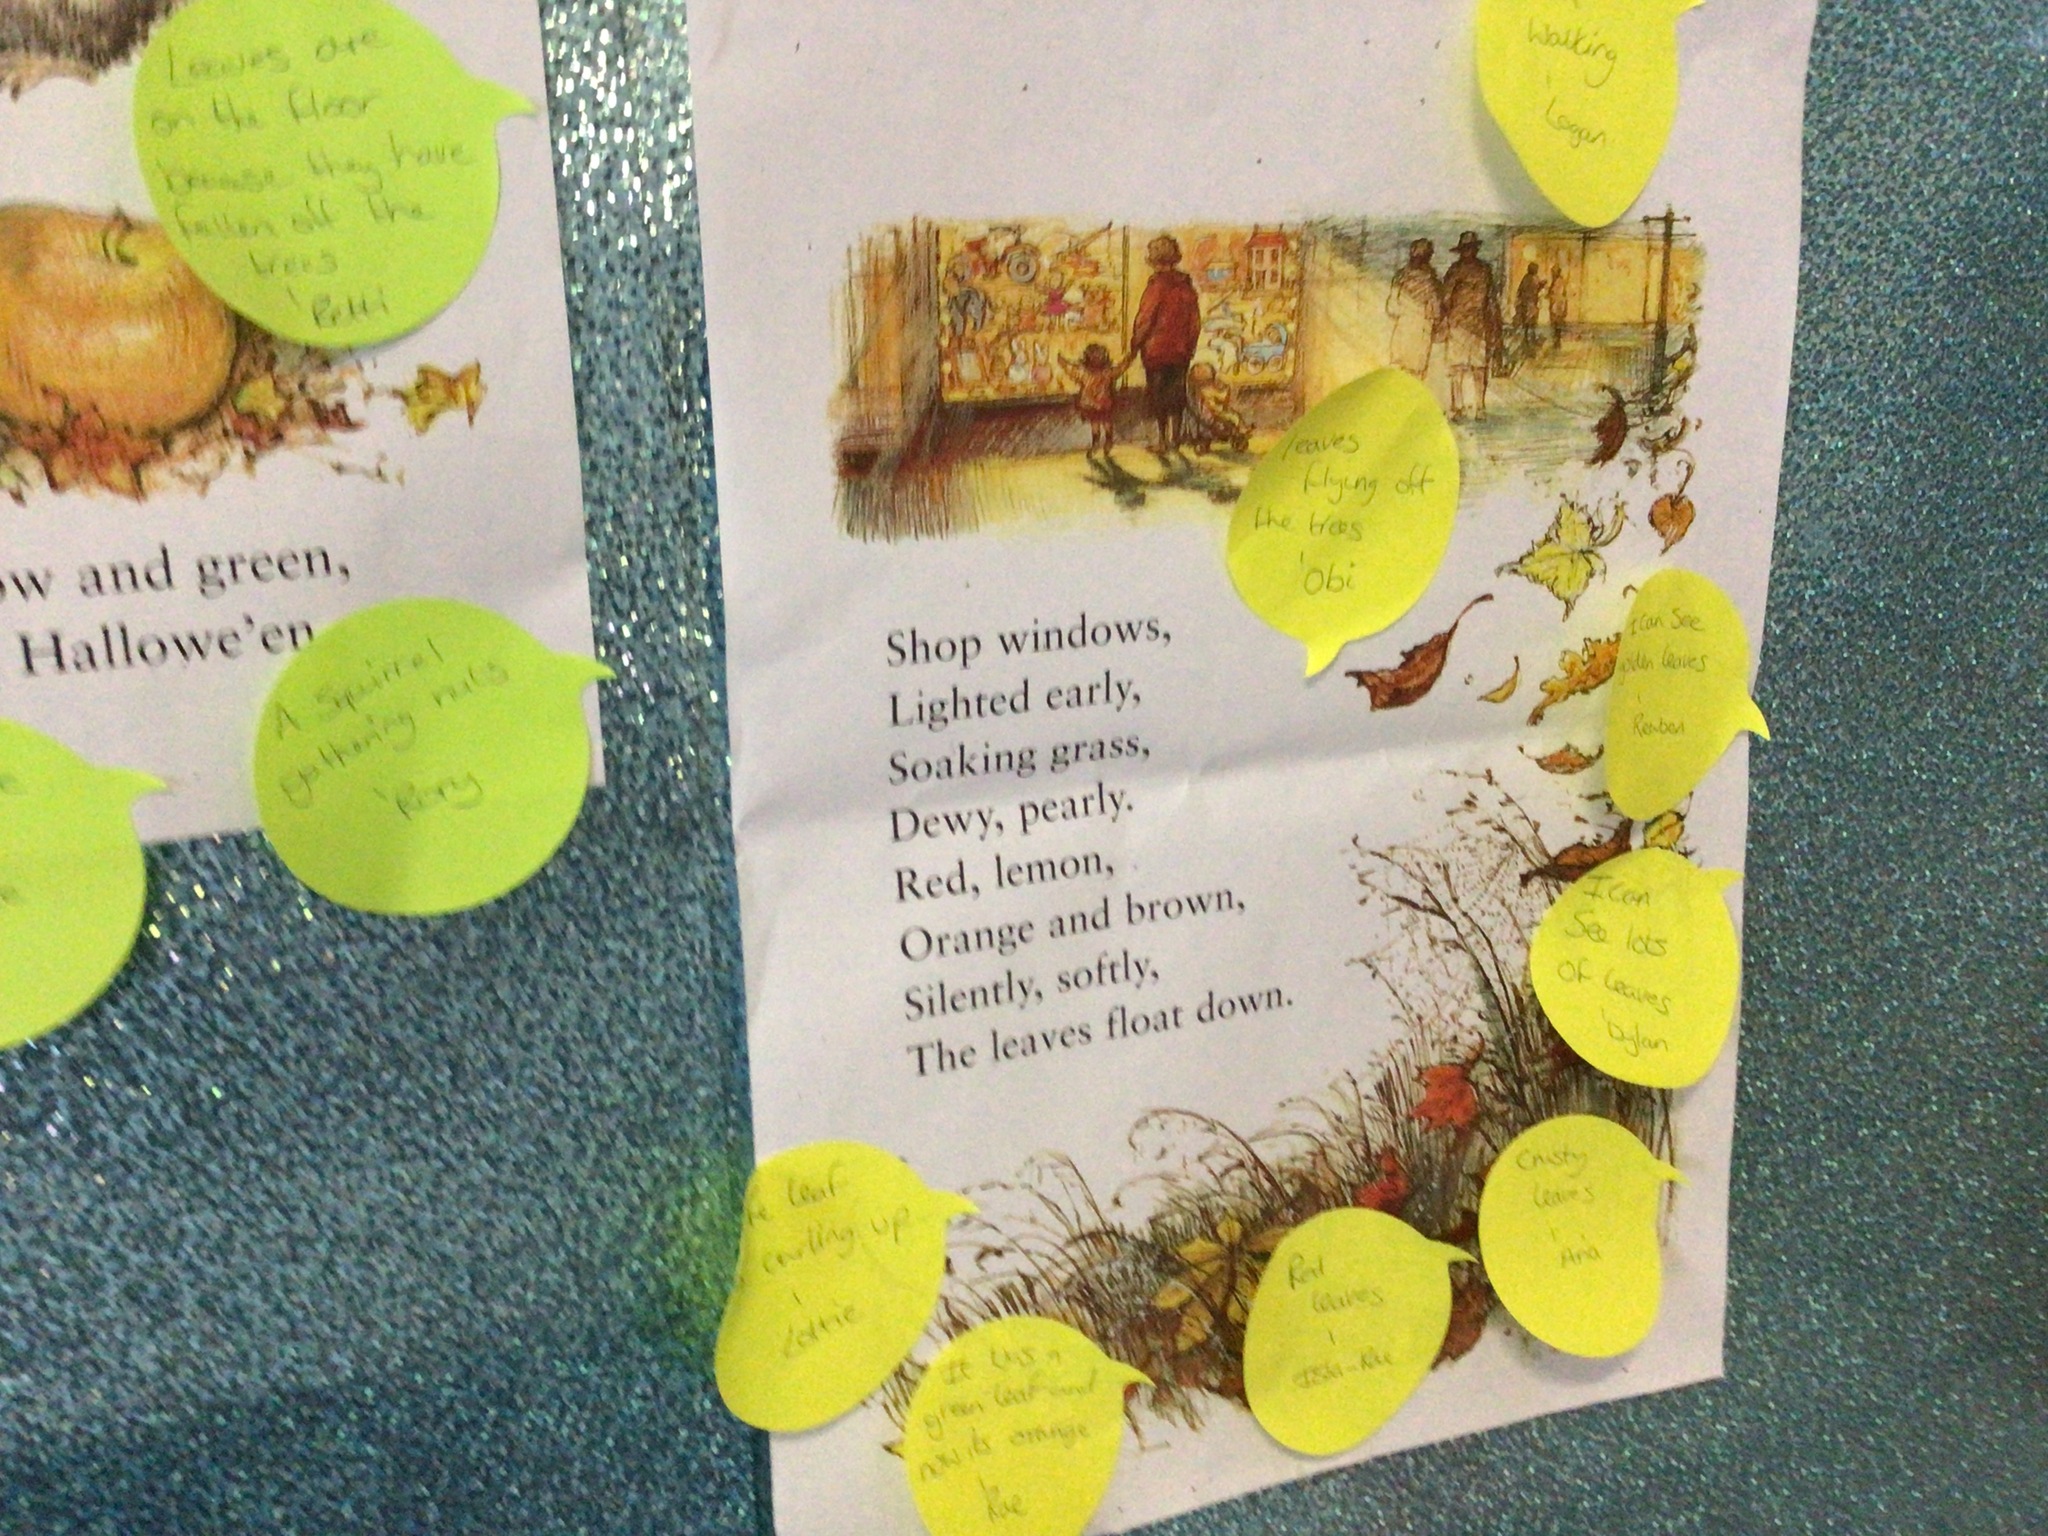 Leaves are
on the floor
because they have
fallen off the
trees
and green,
Hallowe'en
A Squirrel
gathering nuts
Walking
Logan
leaves
flying off
the trees
Obi
Shop windows,
Lighted early,
Soaking grass,
Dewy, pearly.
Red, lemon,
Orange and brown,
Silently, softly,
The leaves float down.
I Can See
leaves
Reuben
I can
See lots
Of leaves
Dylan
Crusty
leaves
Aria
leaf
curling up
Lottie
It was a
green leaf and
now its orange
Rae
Red
leaves
Isla-Rae